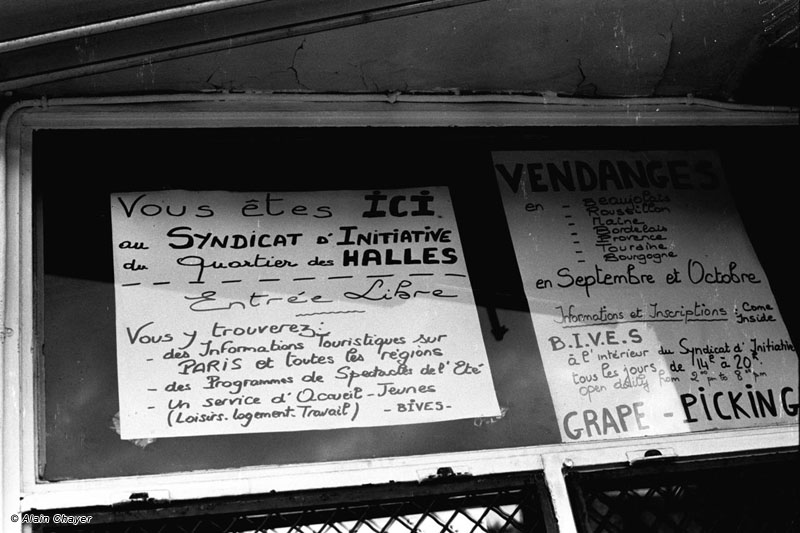 Vous êtes ICI
au SYNDICAT d'INITIATIVE
du Quartier des HALLES
Entrée Libre
Vous y trouverez:
- des Informations Touristiques sur
PARIS et toutes les régions
- des Programmes de Spectacles de l'Eté
- un service d'Accueil-Jeunes
(Loisirs. logement. Travail) - BIVES -
VENDANGES
en - Beaujolais
- Roussillon
- Maine
- Bordelais
- Provence
- Touraine
- Bourgogne
en Septembre et Octobre
Informations et Inscriptions: Come Inside
B.I.V.E.S
à l'intérieur du Syndicat d'Initiative
tous les jours de 14H à 20H
open daily from 2 pm to 8 pm
GRAPE - PICKING
© Alain Chayer